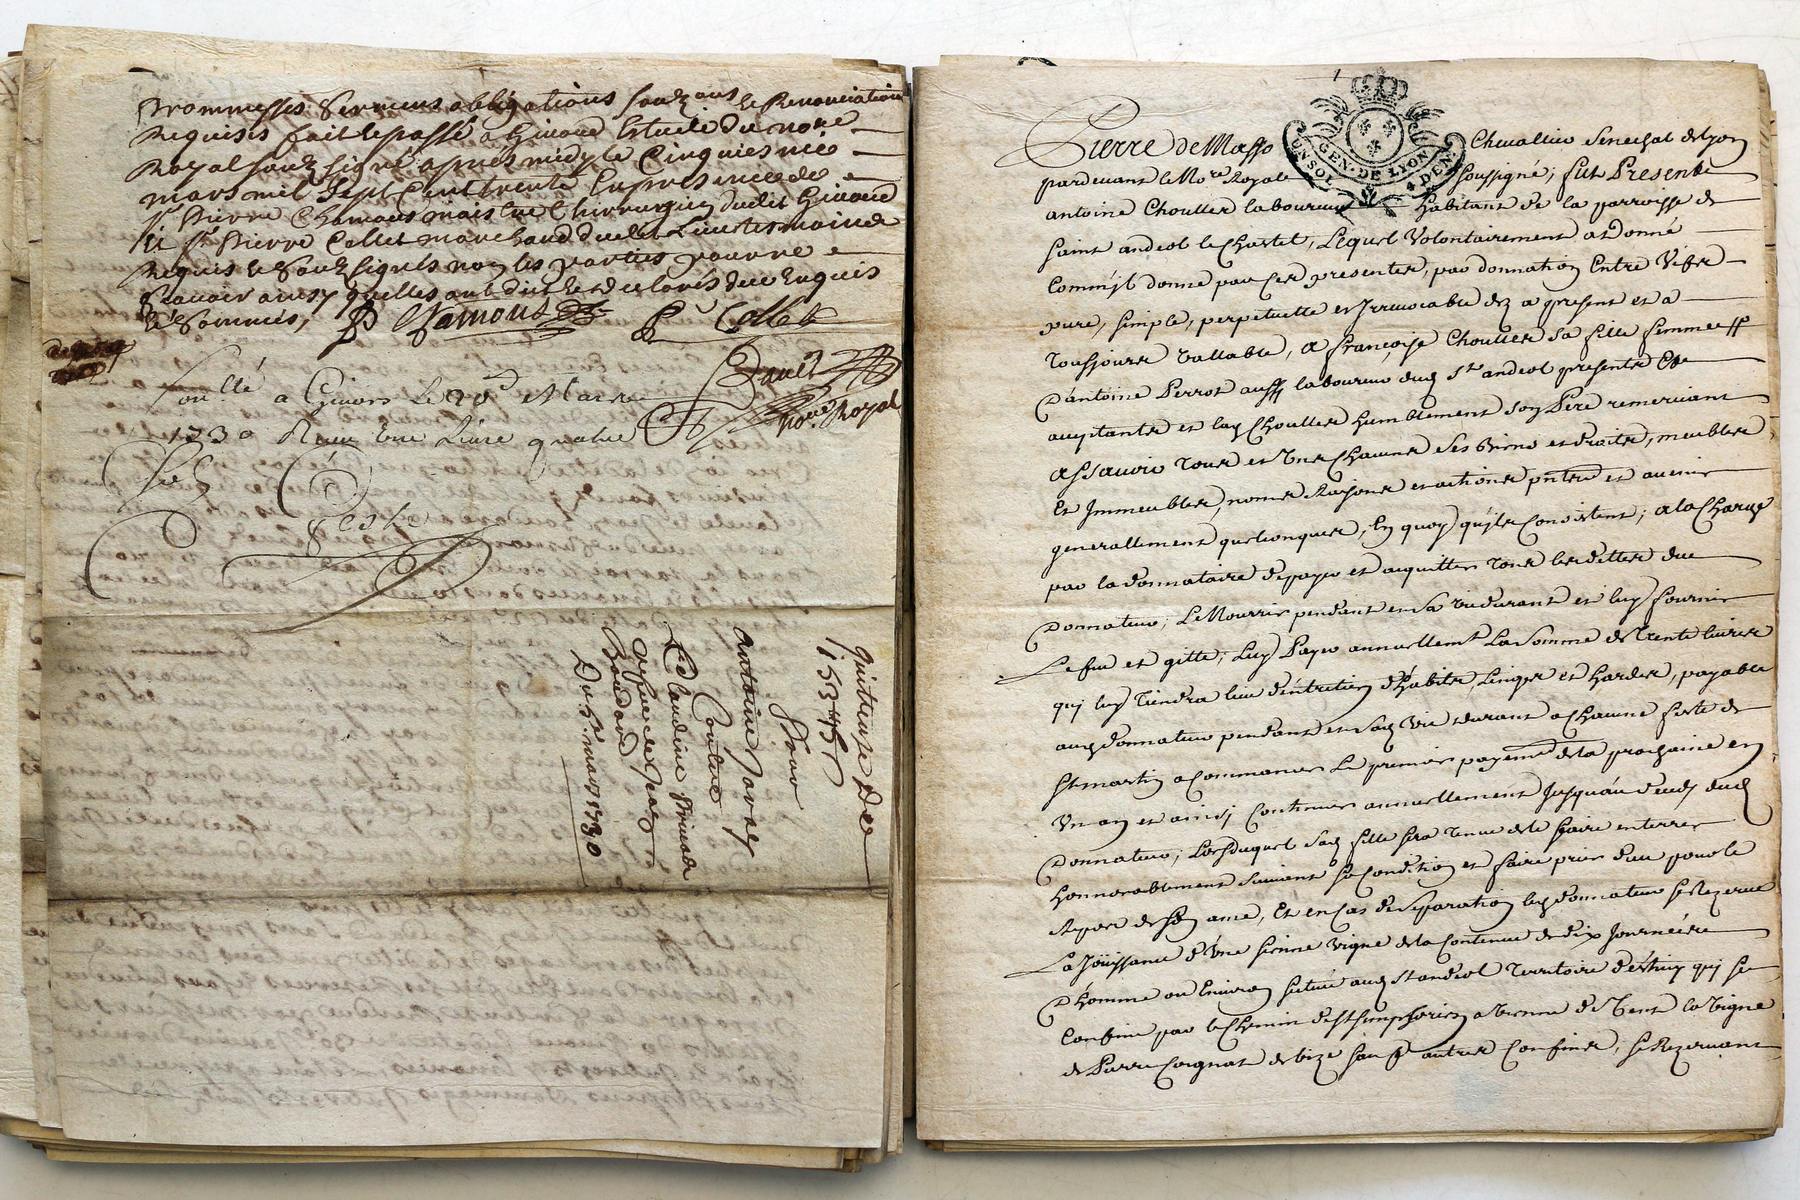 prommesses Sermens obligations soubz ons & Renonciations
Requises fait & passé a Givord Estude du nore
Royal soubzsigné apres midy le Cinquiesme
mars mil sept Cent trente En presence de
sr Pierre Chamous maistre Chirurgien dudit Givord
& sr Pierre Collet marchand dudit Lieu tesmoins
Requis & Soubzsignés non les parties pour ne
Scavoir ainsy quelles ont dit & declarés de ce Enquis
& Sommés,
P Chamous P Collet
Conllé a Givors le Mars
1730 Reçu Une Livre quatre
nore Royal
quittance de
153
pour
Antoine
Contre
Claudine
Du 5e mars 1730
GEN. DE LYON
4 DEN.
Pierre de Masso Chevallier Senechal de Lyon
pardevant le Nore Royale soussigné, fut Presente
antoine Choullet laboureur habitant de la parroisse de
Saint andeol le Chastel, Lequel Volontairement a donné
Comme il donne par ces presentes, par donnation Entre Vifs
pure, simple, perpetuelle et Irrevocable dez a present et a
Tousjours vallable, a françoise Choullet sa fille femme
D'antoine Perrot aussy laboureur dud St andeol presente &
acceptante et lad Choullet humblement son Pere remerciant
assavoir Tous et Uns Chacuns ses biens et droits, meubles
Et Immeubles, noms Raisons et actions pnts et avenir
generallement quelconques, En quoy qu'ils Consistent, a la Charge
par la donnataire de payer et acquitter Tous les dettes du
Donnateur, Le Nourrir pendant sa vie durant et luy fournir
Le feu et gitte, Luy Payer annuellemt La Somme de Trente livres
qui luy Tiendra lieu d'entretien d'habits, Linges et hardes, payable
aud donnateur pendant sad vie durant a Chacune feste de
St martin a Commencer Le premier payement de la prochaine en
Un an et ainsy Continuer annuellement Jusqu'au deceds dud
Donnateur, Lors duquel sad fille sera Tenue de le faire enterrer
Honnorablement suivant sa Condition et faire prier dieu pour le
Repos de son ame, Et en Cas de Separation led donnateur se Rezerve
La Joüissance d'Une sienne vigne de la Contenue de dix Journées
D'homme ou Environ scituée aud St andeol Territoire qui se
Confine par le Chemin de St Simphorien a Vienne de Vent la Vigne
de Pierre Coignat de bize sauf autres Confins, se Rezervant